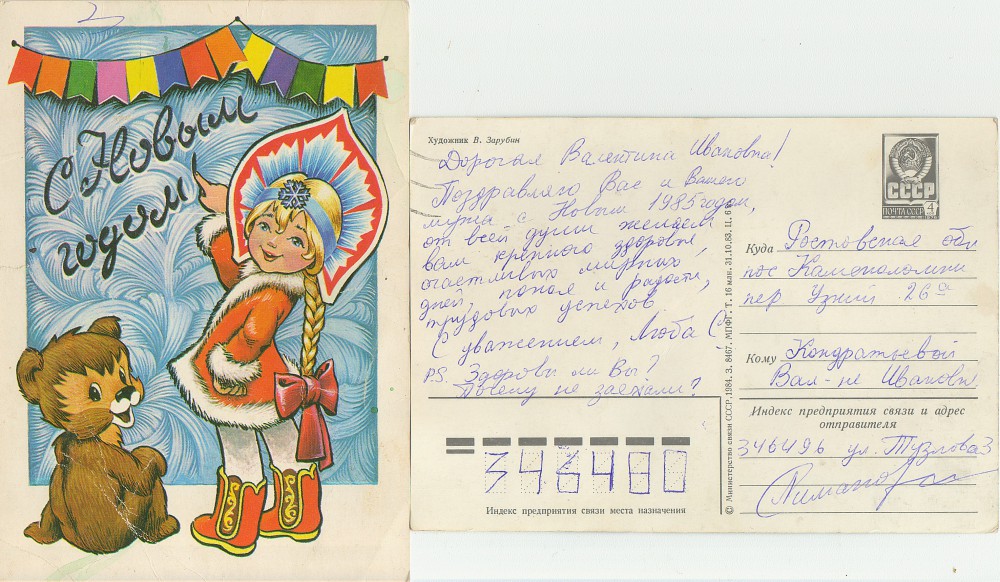 С Новым
годом!
Художник В. Зарубин
Дорогая Валентина Ивановна!
Поздравляю Вас и Вашего
мужа с Новым 1985 годом,
от всей души желаем
вам крепкого здоровья,
счастливых мирных
дней, покоя и радости,
трудовых успехов.
С уважением, Люба
P.S. Здоровы ли Вы?
Почему не заехали?
СССР
ПОЧТА СССР 4
Куда Ростовская обл
пос Каменоломни
пер Узкий 26а
Кому Кондратьевой
Вал-не Ивановне
Индекс предприятия связи и адрес
отправителя
346496 ул. Тузлова 3
346480
Индекс предприятия связи места назначения
© Министерство связи СССР, 1984, З. 8467. МПФГ. Т. 16 млн. 31.10.83. Ц. 6 к.